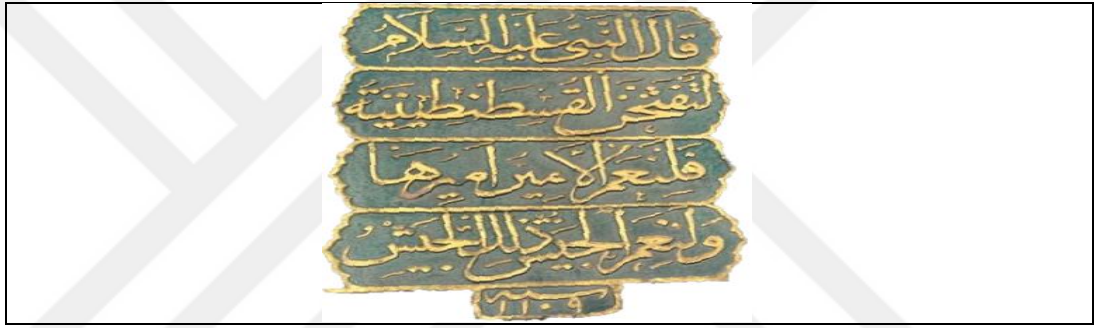 قال النبي عليه السلام
لتفتحن القسطنطينية
فلنعم الأمير أميرها
ولنعم الجيش ذلك الجيش
سنه ١١٠٩